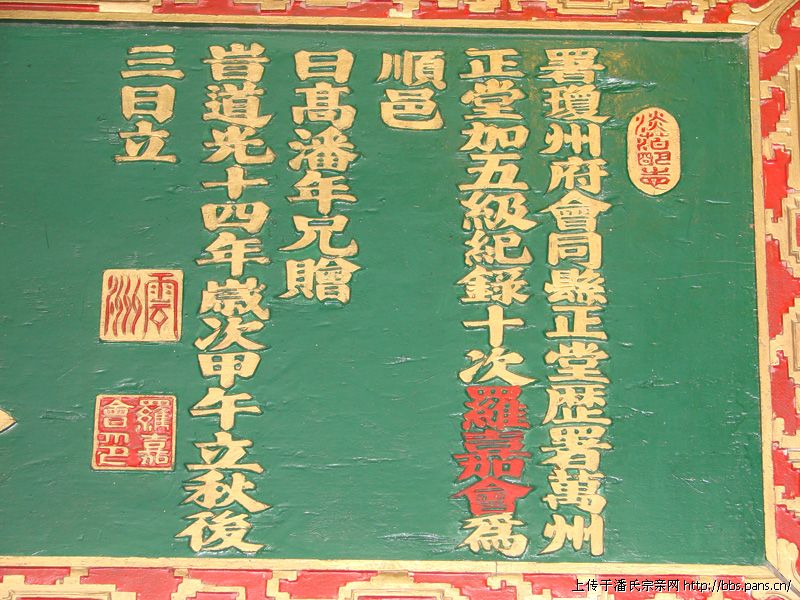 署瓊州府會同縣正堂歷署萬州
正堂加五級紀錄十次羅嘉會為
順邑
日高潘年兄贈
旹道光十四年歲次甲午立秋後
三日立
雲洲
羅嘉會印
上传于潘氏宗亲网 http://bbs.pans.cn/